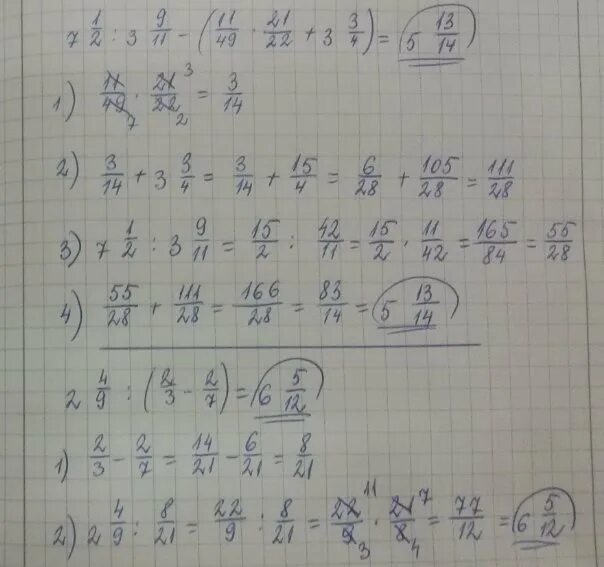 7 1/2 : 3 9/11 - (11/49 · 21/22 + 3 3/4) = 5 13/14
1) 11/49 7 · 21 3/22 2 = 3/14
2) 3/14 + 3 3/4 = 3/14 + 15/4 = 6/28 + 105/28 = 111/28
3) 7 1/2 : 3 9/11 = 15/2 : 42/11 = 15/2 · 11/42 = 165/84 = 55/28
4) 55/28 + 111/28 = 166/28 = 83/14 = 5 13/14
2 4/9 : (2/3 - 2/7) = 6 5/12
1) 2/3 - 2/7 = 14/21 - 6/21 = 8/21
2) 2 4/9 : 8/21 = 22/9 : 8/21 = 22 11/9 3 · 21 7/8 4 = 77/12 = 6 5/12